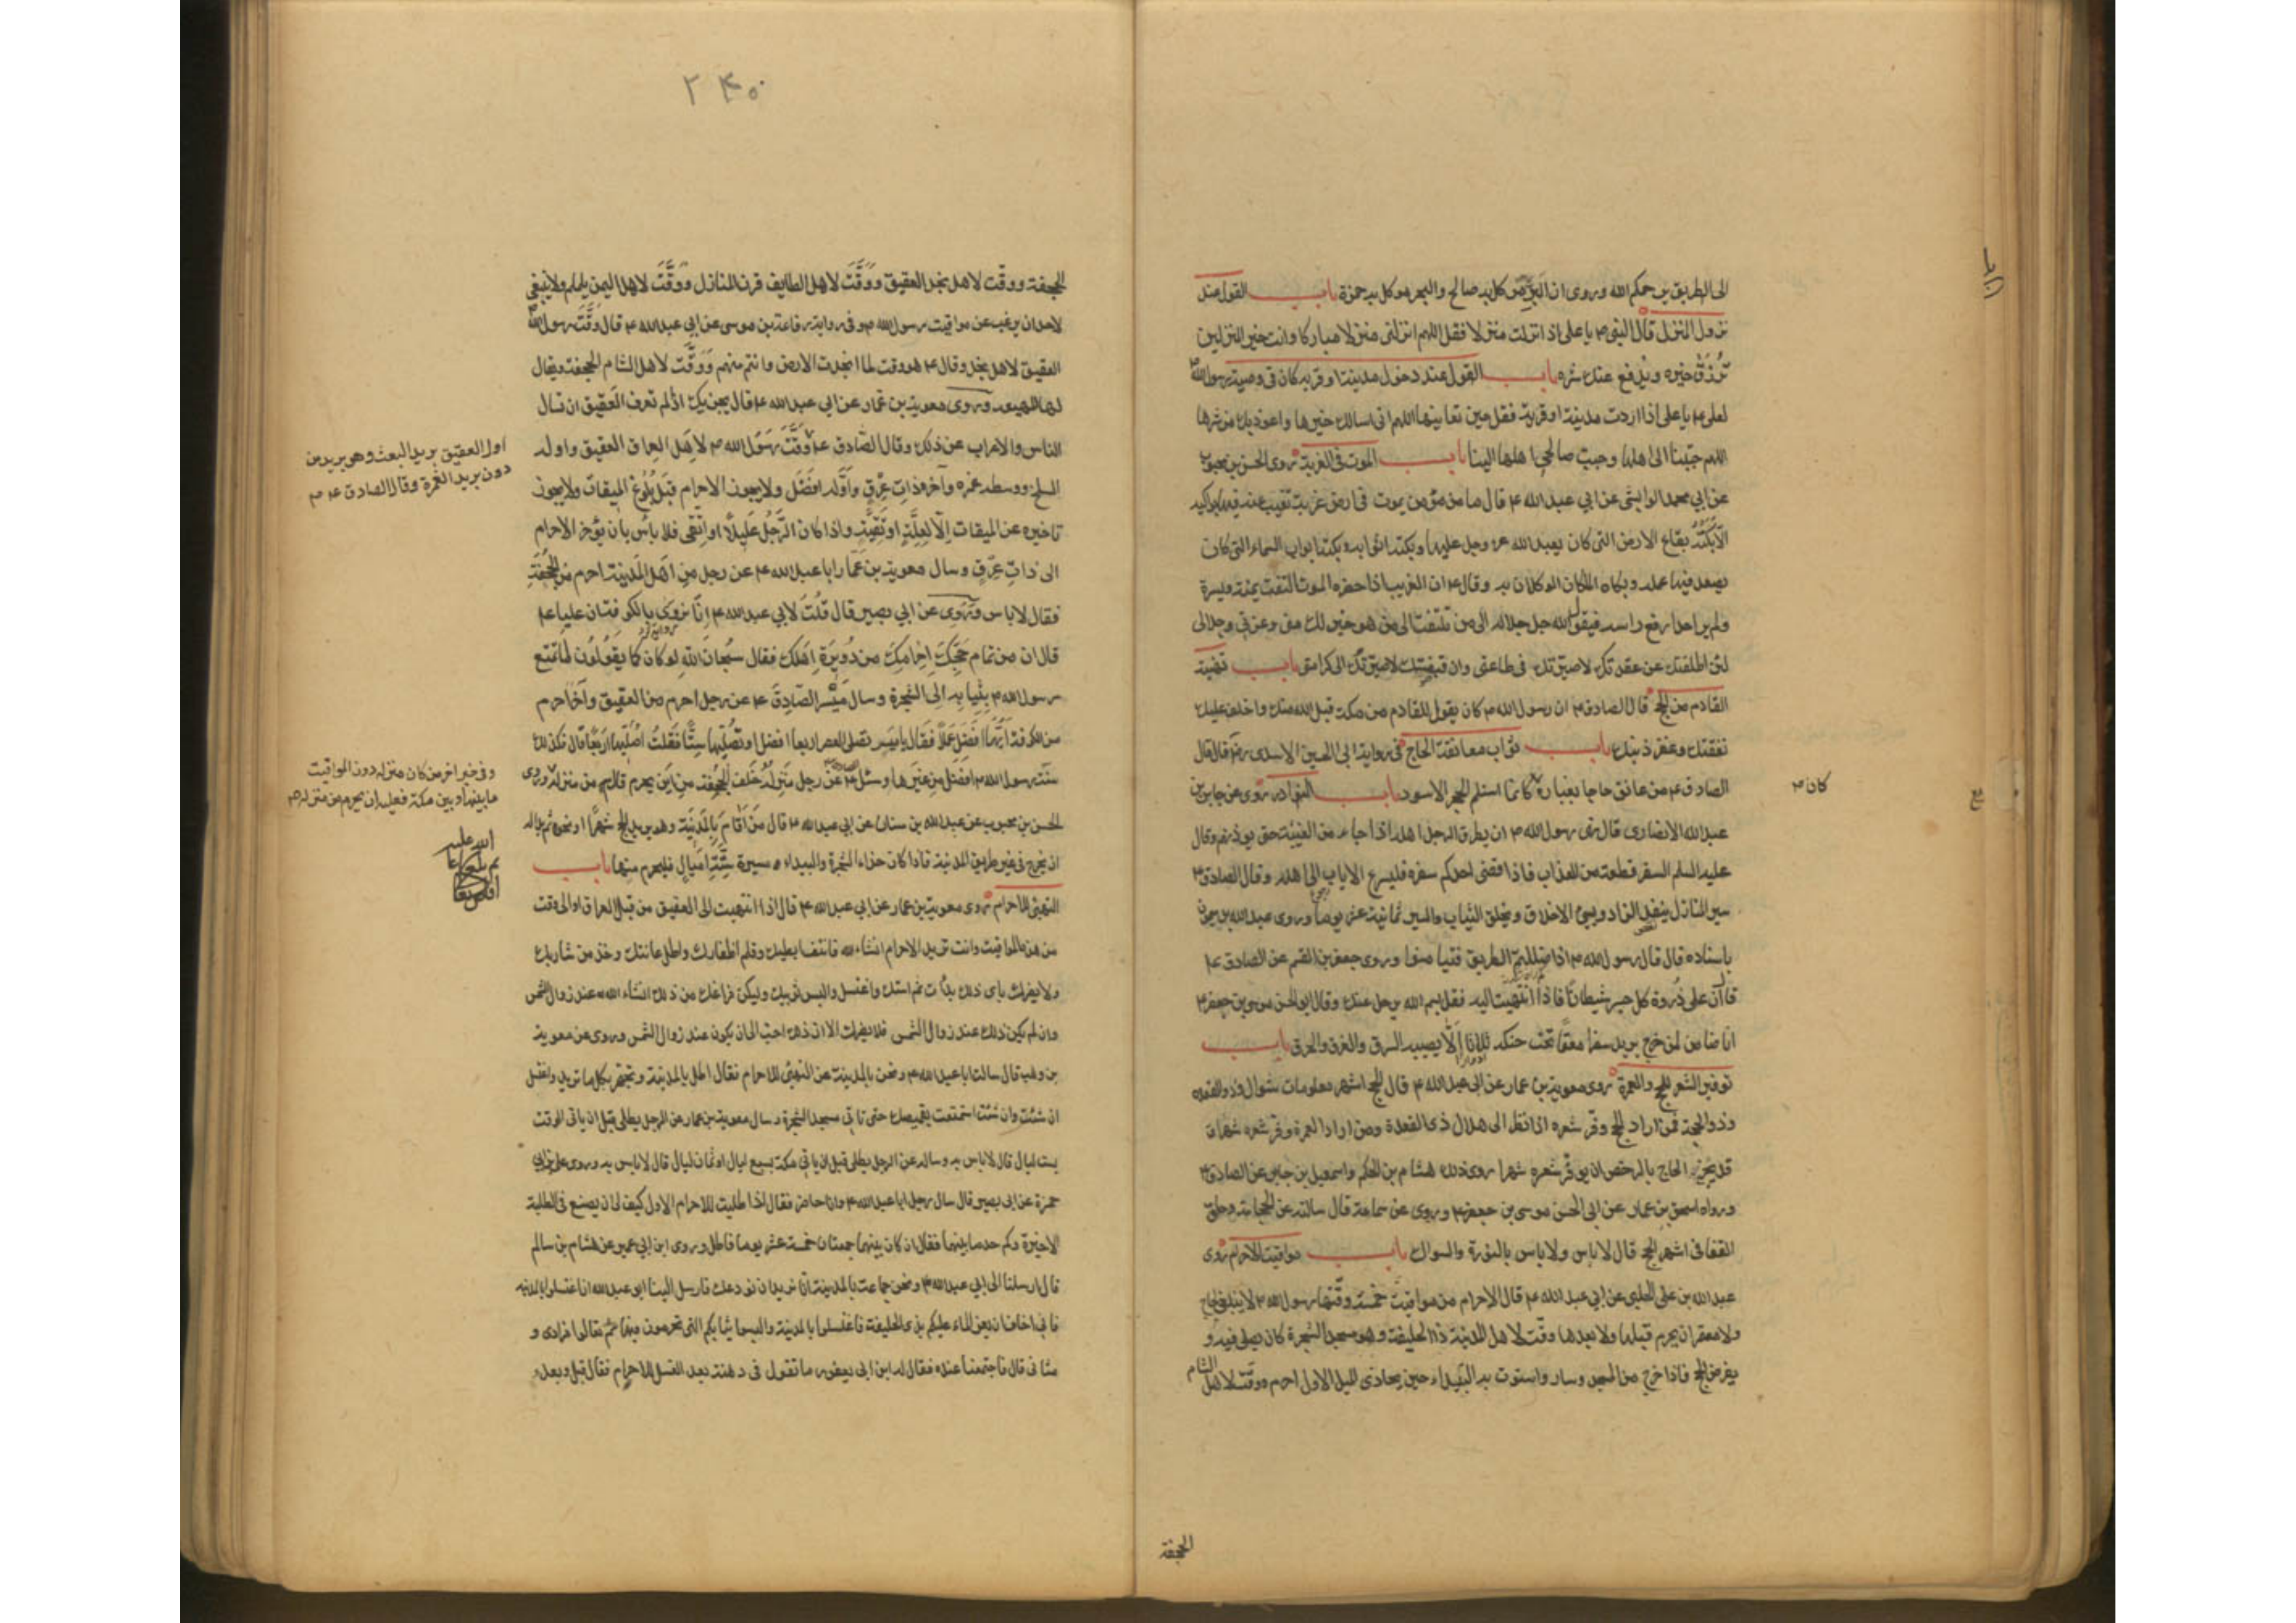 الى الطريق يرحمكم الله وروى ان البر موكل به صالح والبحر موكل به حمزة باب القول عند
نزول المنزل قال النبي ص يا علي اذا نزلت منزلا فقل اللهم انزلني منزلا مباركا وانت خير المنزلين
ترزق خيره ويدفع عنك شره باب القول عند دخول مدينة او قرية كان في وصية رسول الله ص
لعلي ع يا علي اذا اردت مدينة او قرية فقل حين تعاينها اللهم اني اسالك خيرها واعوذ بك من شرها
اللهم حببنا الى اهلها وحبب صالحي اهلها الينا باب الموت في الغربة روى الحسن بن محبوب
عن ابي محمد الوابشي عن ابي عبد الله ع قال ما من مؤمن يموت في ارض غربة تغيب عنه فيها بواكيه
الا بكته بقاع الارض التي كان يعبد الله عز وجل عليها وبكته اثوابه وبكته ابواب السماء التي كان
يصعد فيها عمله وبكاه الملكان الموكلان به وقال ع ان الغريب اذا حضره الموت التفت يمنة ويسرة
ولم ير احدا رفع راسه فيقول الله جل جلاله الى من تلتفت الى من هو خير لك مني وعزتي وجلالي
لئن اطلقتك عن عقدتك لاصيرنك في طاعتي وان قبضتك لاصيرنك الى كرامتي باب تهنية
القادم من الحج قال الصادق ع ان رسول الله ص كان يقول للقادم من مكة قبل الله منك واخلف عليك
نفقتك وغفر ذنبك باب ثواب معانقة الحاج في رواية ابي الحسين الاسدي رض قال قال
الصادق ع من عانق حاجا بغباره كانما استلم الحجر الاسود باب النوادر روى عن جابر بن
كان ص
عبد الله الانصاري قال نهى رسول الله ص ان يطرق الرجل اهله اذا جاء من الغيبة حتى يوذنهم وقال
عليه السلم السفر قطعة من العذاب فاذا قضى احدكم سفره فليسرع الاياب الى اهله وقال الصادق ع
سير المنازل ينفد الزاد ويسيئ الاخلاق ويخلق الثياب والسير ثمانية عشر يوما وروى عبد الله بن ميمون
باسناده قال قال رسول الله ص اذا ضللتم الطريق فتيامنوا وروى جعفر بن القسم عن الصادق ع
قال ان على ذروة كل جسر شيطانا فاذا انتهيت اليه فقل بسم الله يرحل عنك وقال ابو الحسن موسى بن جعفر ع
انا ضامن لمن خرج يريد سفرا معتما تحت حنكه ثلاثا الا يصيبه السرق والغرق والحرق باب
توفير الشعر للحج والعمرة روى معوية بن عمار عن ابي عبد الله ع قال الحج اشهر معلومات شوال وذو القعدة
وذو الحجة فمن اراد الحج وفر شعره اذا نظر الى هلال ذي القعدة ومن اراد العمرة وفر شعره شهرا
قد يجزي الحاج بالرخص ان يوفر شعره شهرا روى ذلك هشام بن الحكم واسمعيل بن جابر عن الصادق ع
ورواه اسحق بن عمار عن ابي الحسن موسى بن جعفر ع وروى عن سماعة قال سالته عن الحجامة وحلق
القفا في اشهر الحج قال لا باس ولا باس بالنورة والسواك باب مواقيت الاحرام روى
عبد الله بن علي الحلبي عن ابي عبد الله ع قال الاحرام من مواقيت خمسة وقتها رسول الله ص لا ينبغي لحاج
ولا معتمر ان يحرم قبلها ولا بعدها وقت لاهل المدينة ذا الحليفة وهو مسجد الشجرة كان يصلى فيه و
يفرض الحج فاذا خرج من المسجد وسار واستوت به البيداء حين يحاذي الميل الاول احرم ووقت لاهل الشام
الجحفة
۲۴۰
الجحفة ووقت لاهل نجد العقيق ووقت لاهل الطايف قرن المنازل ووقت لاهل اليمن يلملم ولا ينبغي
لاحد ان يرغب عن مواقيت رسول الله ص وفي رواية رفاعة بن موسى عن ابي عبد الله ع قال وقت رسول الله ص
العقيق لاهل نجد وقال ع هو وقت لما انجدت الارض وانتم منهم ووقت لاهل الشام الجحفة ويقال
لها المهيعة وروى معوية بن عمار عن ابي عبد الله ع قال يجزيك اذا لم تعرف العقيق ان تسال
الناس والاعراب عن ذلك وقال الصادق ع وقت رسول الله ص لاهل العراق العقيق واوله
اول العقيق بريد البعث وهو بريد من
دون بريد الغمرة وقال الصادق ع
المسلخ ووسطه غمره وآخره ذات عرق واوله افضل ولا يجوز الاحرام قبل بلوغ الميقات ولا يجوز
تاخيره عن الميقات الا لعلة او تقية واذا كان الرجل عليلا او اتقى فلا باس بان يؤخر الاحرام
الى ذات عرق وسال معوية بن عمار ابا عبد الله ع عن رجل من اهل المدينة احرم من الجحفة
فقال لا باس وروى عن ابي بصير قال قلت لابي عبد الله ع انا نروى بالكوفة ان عليا ع
قال ان من تمام حجك احرامك من دويرة اهلك فقال سبحان الله لو كان كما يقولون لما تمتع
رسول الله ص بثيابه الى الشجرة وسال ميسر الصادق ع عن رجل احرم من العقيق وآخر احرم
من الكوفة ايهما افضل عملا فقال يا ميسر تصلى العصر اربعا افضل او تصليها ستا فقلت اصليها اربعا قال فكذلك
سنة رسول الله ص افضل من غيرها وسئل الصادق ع عن رجل منزله خلف الجحفة من اين يحرم قال من منزله وروى
وفي خبر اخر من كان منزله دون المواقيت
ما بينها وبين مكة فعليه ان يحرم من منزله
الحسن بن محبوب عن عبد الله بن سنان عن ابي عبد الله ع قال من اقام بالمدينة وهو يريد الحج شهرا او نحوه ثم بدا له
ان يخرج في غير طريق المدينة فاذا كان حذاء الشجرة والبيداء مسيرة ستة اميال فليحرم منها باب
التهيئ للاحرام روى معوية بن عمار عن ابي عبد الله ع قال اذا انتهيت الى العقيق من قبل العراق او الى وقت
من هذه المواقيت وانت تريد الاحرام انشاء الله فانتف ابطيك وقلم اظفارك واطل عانتك وخذ من شاربك
ولا يضرك باي ذلك بدأت ثم استك واغتسل والبس ثوبيك وليكن فراغك من ذلك انشاء الله عند زوال الشمس
وان لم يكن ذلك عند زوال الشمس فلا يضرك الا ان ذلك احب الى ان يكون عند زوال الشمس وروى عن معوية
بن وهب قال سالت ابا عبد الله ع ونحن بالمدينة عن التهيئ للاحرام فقال اطل بالمدينة وتجهز بكل ما تريد واغتسل
ان شئت وان شئت استمتعت بقميصك حتى تاتي مسجد الشجرة وسال معوية بن عمار عن الرجل يطلى قبل ان ياتي الوقت
بست ليال قال لا باس به وساله عن الرجل يطلى قبل ان ياتي مكة بسبع ليال او ثمان ليال قال لا باس به وروى علي بن ابي
حمزة عن ابي بصير قال سال رجل ابا عبد الله ع وانا حاضر فقال اذا طليت للاحرام الاول كيف لي ان يصنع في الطلية
الاخيرة وكم حد ما بينهما فقال ان كان بينهما جمعتان خمسة عشر يوما فاطل وروى ابن ابي عمير عن هشام بن سالم
قال ارسلنا الى ابي عبد الله ع ونحن جماعة بالمدينة انا نريد ان نودعك فارسل الينا ابو عبد الله ان اغتسلوا بالمدينة
فاني اخاف ان يعز الماء عليكم بذي الحليفة فاغتسلوا بالمدينة والبسوا ثيابكم التي تحرمون فيها ثم تعالوا فرادى و
مثاني قال فاجتمعنا عنده فقال له ابن ابي يعفور ما تقول في دهنة بعد الغسل للاحرام فقال قبل وبعد و